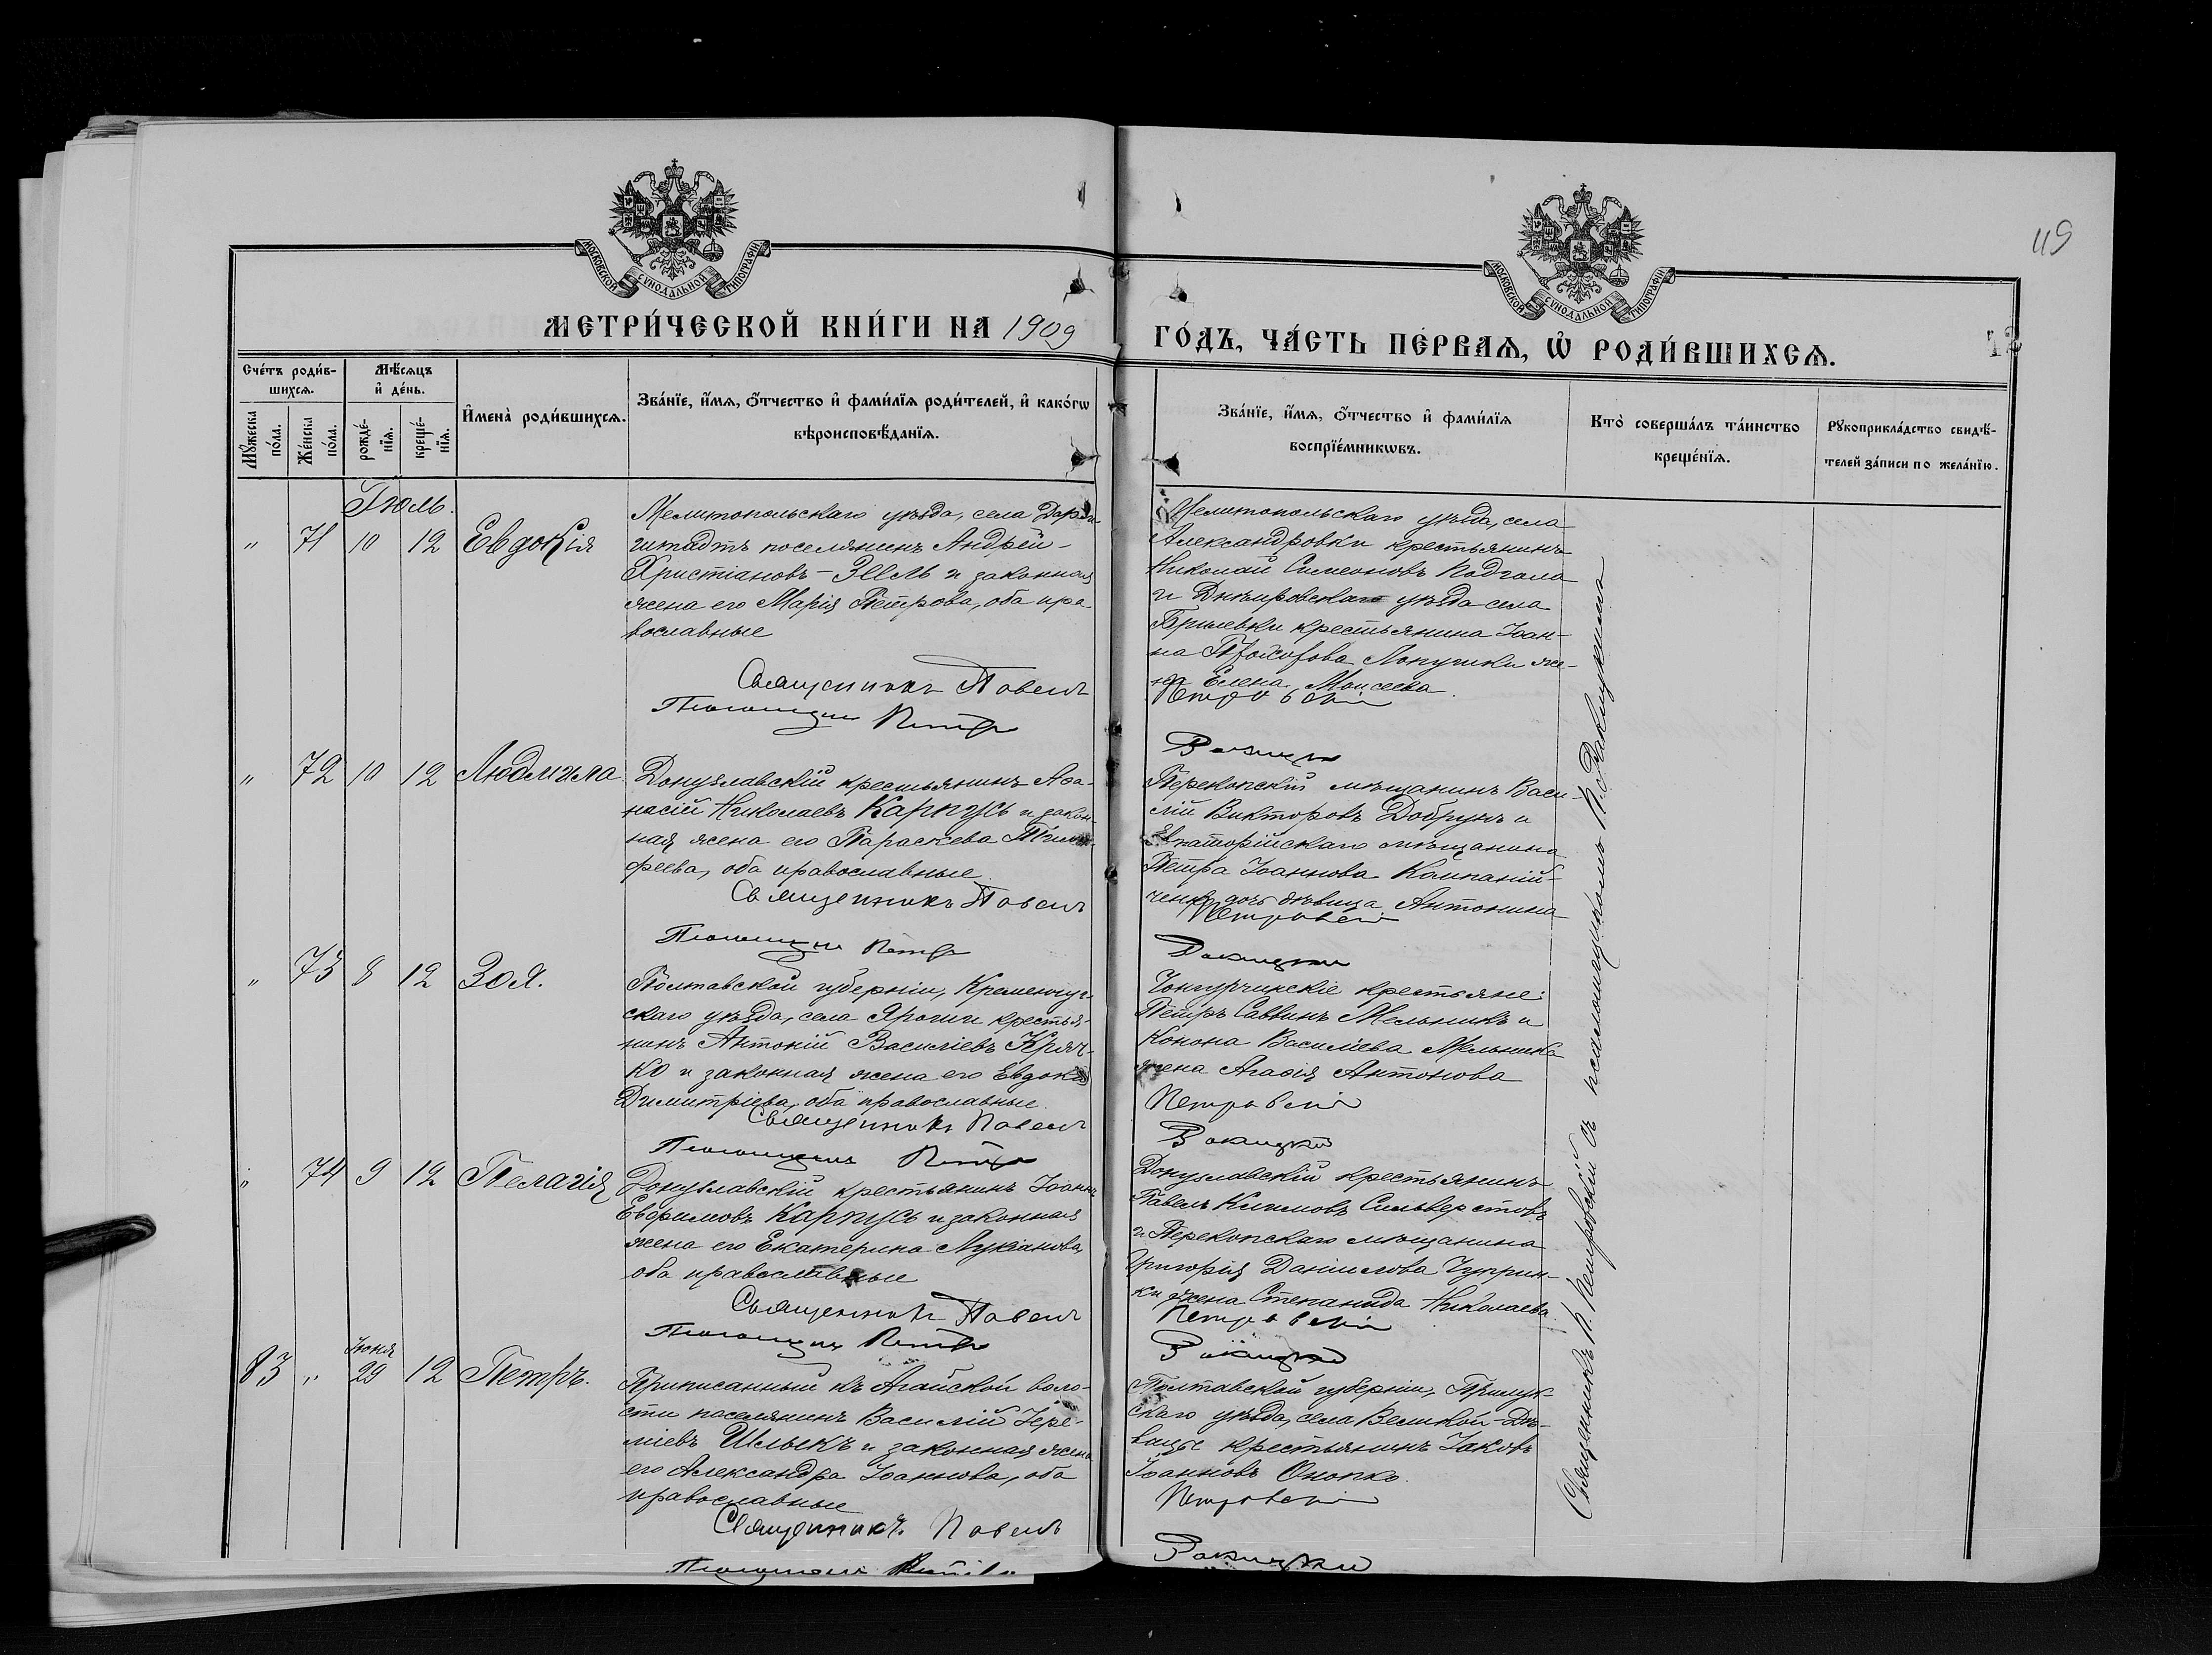 119
МОСКОВСКОЙ СУНОДАЛЬНОЙ ТИПОГРАФІИ
МОСКОВСКОЙ СУНОДАЛЬНОЙ ТИПОГРАФІИ
МЕТРИ́ЧЕСКОЙ КНИ́ГИ НА 1909
ГО́ДЪ, ЧА́СТЬ ПЕ́РВАѦ, Ѡ҆ РОДИ́ВШИХСѦ.
Сче́тъ роди́в-
шихсѧ.
Мѣ́сѧцъ
и҆ де́нь.
Мꙋ́жеска
по́ла.
Же́нска
по́ла.
рожде́-
нїѧ.
креще́-
нїѧ.
И҆мена̀ роди́вшихсѧ.
Зва́нїе, и҆́мѧ, ѻ҆́тчество и҆ фами́лїѧ роди́телей, и҆ како́гѡ
вѣроисповѣ́данїѧ.
Зва́нїе, и҆́мѧ, ѻ҆́тчество и҆ фами́лїѧ
воспрїе́мникѡвъ.
Кто̀ соверша́лъ та́инство
креще́нїѧ.
Рꙋкоприкла́дство свидѣ́-
телей за́писи по жела́нїю.
Іюль.
" 71 10 12 Евдокія
Мелитопольскаго уѣзда, села
штадтъ поселянинъ Андрей
Христіановъ Зелль и законная
жена его Марія Петрова, оба пра-
вославные
Священникъ Павелъ
Псаломщикъ Петръ
Мелитопольскаго уѣзда, села
Александровки крестьянинъ
Николай Симеоновъ Подгола
и Днѣпровскаго уѣзда села
Брилевки крестьянина Іоан-
на Лопушки же-
на Елена Моисеева.
Петровскій
Ракицкій
" 72 10 12 Людмила
Донузлавскій крестьянинъ Аѳа-
насій Николаевъ Карпусь и закон-
ная жена его Параскева Тимо-
феева, оба православные.
Священникъ Павелъ
Псаломщикъ Петръ
Перекопскій мѣщанинъ Васи-
лій Викторовъ Добрунъ и
Евпаторійскаго мѣщанина
Петра Іоаннова Компаній-
ченко дочь дѣвица Антонина
Петровскій
Ракицкій
" 73 8 12 Зоя.
Полтавской губерніи, Кременчуг-
скаго уѣзда, села крестья-
нинъ Антоній Василіевъ Кряч-
ко и законная жена его Евдокія
Димитріева, оба православные.
Священникъ Павелъ
Псаломщикъ Петръ
крестьяне:
Петръ Саввинъ Мельникъ и
Конона Василіева Мельника
жена Агаѳія Антонова
Петровскій
Ракицкій
" 74 9 12 Пелагія
Донузлавскій крестьянинъ Іоаннъ
Евфимовъ Карпусь и законная
жена его Екатерина Лукіанова,
оба православные
Священникъ Павелъ
Псаломщикъ Петръ
Донузлавскій крестьянинъ
Павелъ Климовъ Сильверстовъ
и Перекопскаго мѣщанина
Григорія Даніилова Чуприн-
ки жена Степанида Николаева.
Петровскій
Ракицкій
Іюня
83 " 29 12 Петръ.
Приписанный къ Агайской воло-
сти поселянинъ Василій Іере-
міевъ Шлыкъ и законная жена
его Александра Іоаннова, оба
православные
Священникъ Павелъ
Псаломщикъ Петръ
Полтавской губерніи, Прилук-
скаго уѣзда, села Великой-Дѣ-
вицы крестьянинъ Іаковъ
Іоанновъ Онопко.
Петровскій
Ракицкій
Священникъ П. Петровскій съ псаломщикомъ П. Ракицкимъ